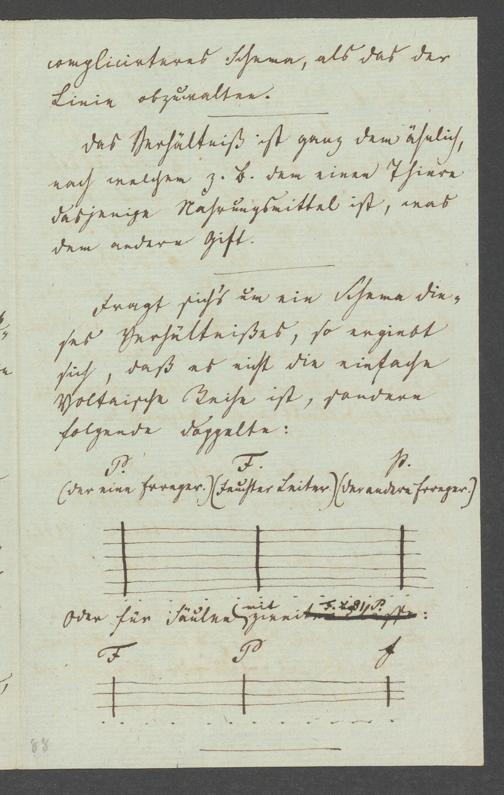 complicirteres Schema, als das der
Linie obzuwalten.
Das Verhältniß ist ganz dem ähnlich,
nach welchem z. B. dem einen Thiere
dasjenige Nahrungsmittel ist, was
dem andern Gift.
Fragt sich's um ein Schema die-
ses Verhältnißes, so ergiebt
sich, daß es nicht die einfache
Voltaische Reihe ist, sondern
folgende doppelte:
P. F. p.
(der eine Erreger.) (Feuchter Leiter) (der andere Erreger.)
oder für Säulen mit :
F P f
88